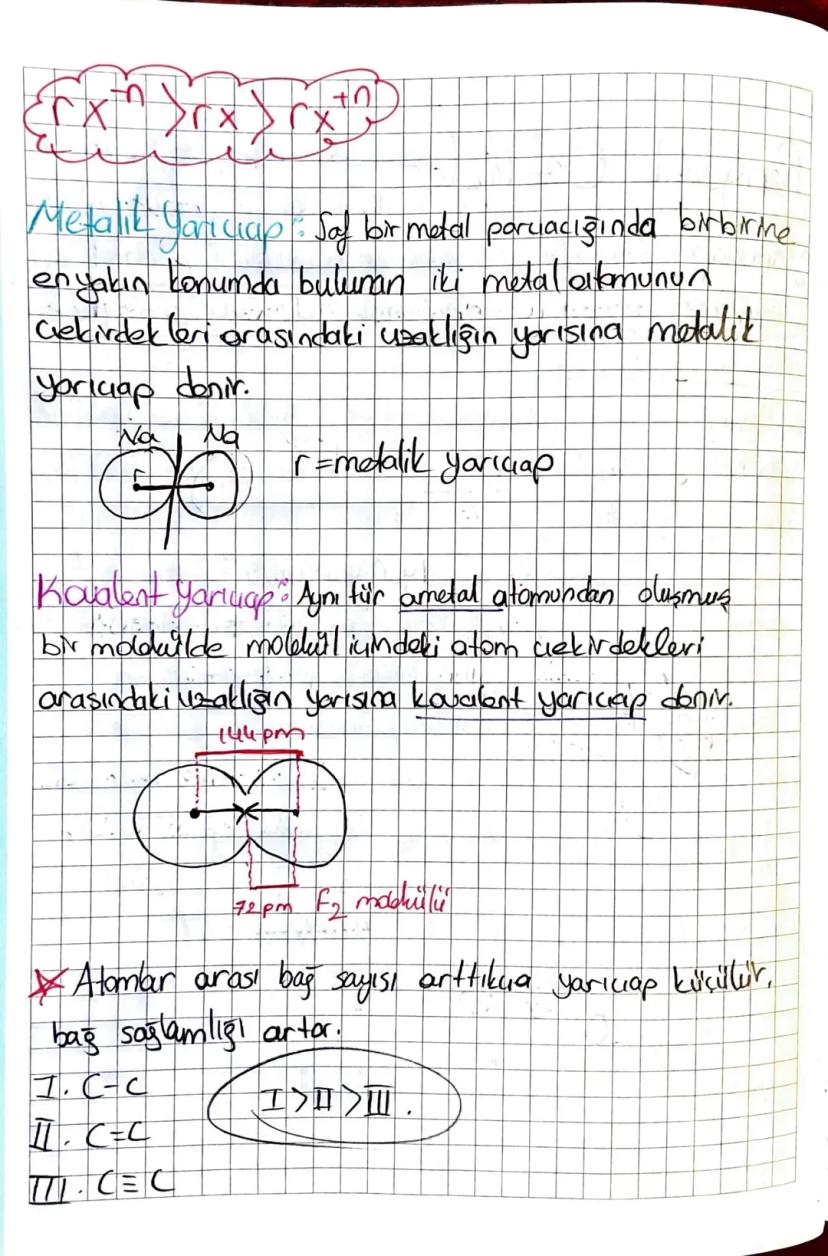 rx⁻ⁿ > rx > rx⁺ⁿ
Metalik Yarıçap: Saf bir metal parçacığında birbirine
en yakın konumda bulunan iki metal atomunun
çekirdekleri arasındaki uzaklığın yarısına metalik
yarıçap denir.
Na Na
r r=metalik yarıçap
Kovalent Yarıçap: Aynı tür ametal atomundan oluşmuş
bir molekülde molekül içindeki atom çekirdekleri
arasındaki uzaklığın yarısına kovalent yarıçap denir.
144 pm
72 pm F₂ molekülü
Atomlar arası bağ sayısı arttıkça yarıçap küçülür,
bağ sağlamlığı artar.
I. C-C
I > II > III.
II. C=C
III. C≡C